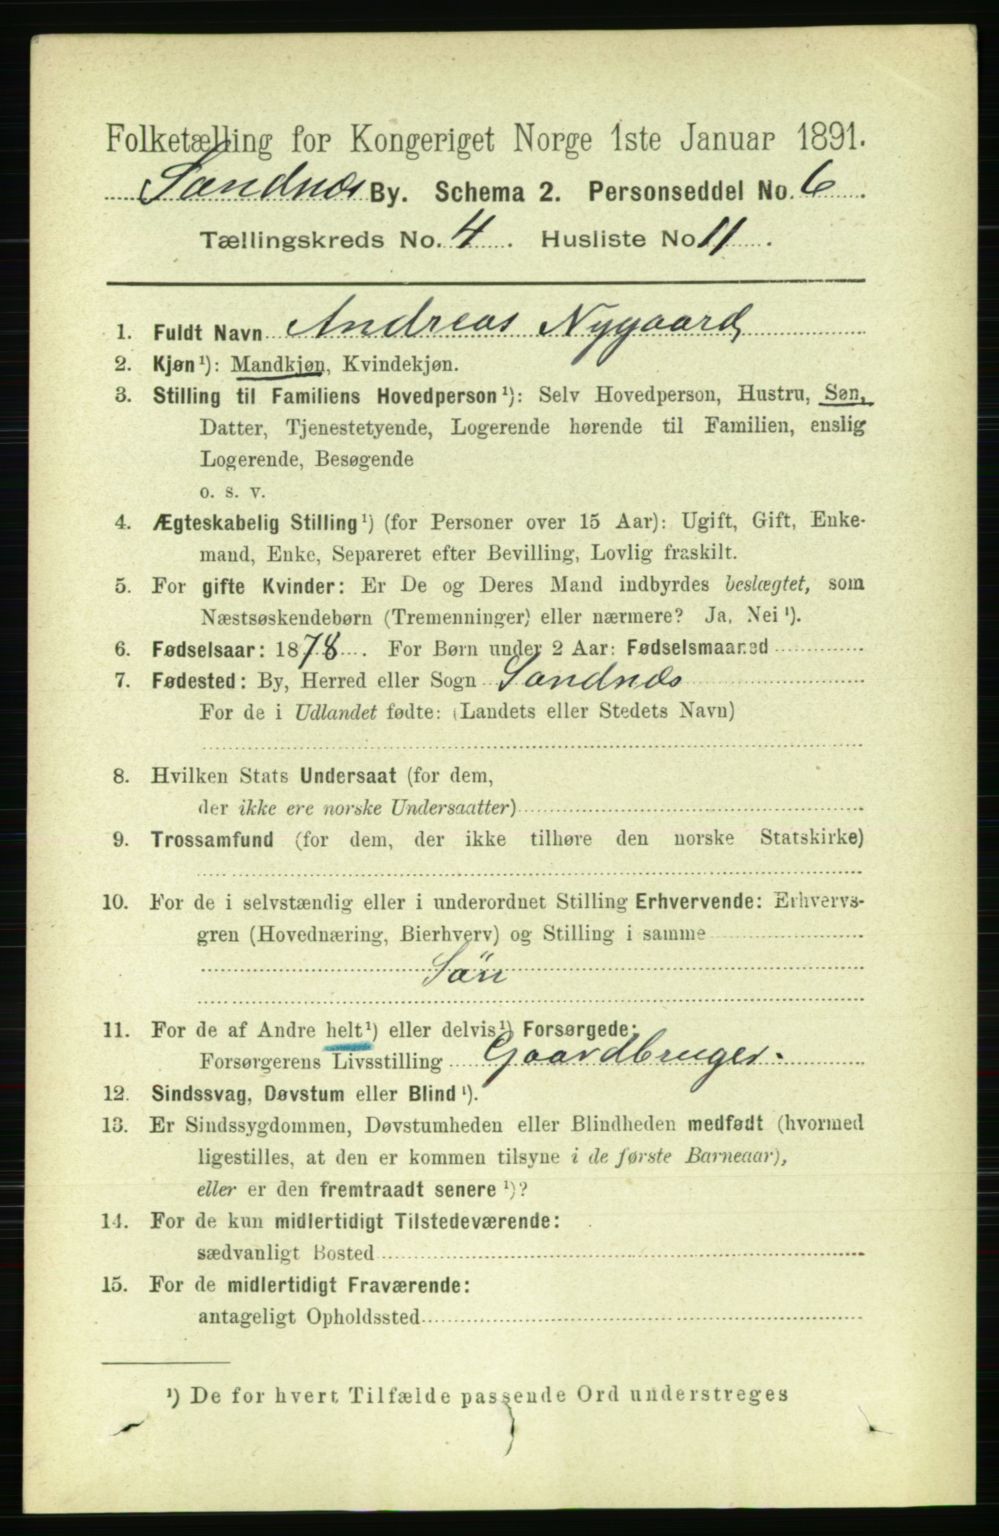 Folketælling for Kongeriget Norge 1ste Januar 1891.
Sandnæs By. Schema 2. Personseddel No. 6.
Tællingskreds No. 4. Husliste No 11.
1. Fuldt Navn Andreas Nygaard
2. Kjøn¹): Mandkjøn, Kvindekjøn.
3. Stilling til Familiens Hovedperson¹): Selv Hovedperson, Hustru, Søn,
Datter, Tjenestetyende, Logerende hørende til Familien, enslig
Logerende, Besøgende
o. s. v.
4. Ægteskabelig Stilling¹) (for Personer over 15 Aar): Ugift, Gift, Enke-
mand, Enke, Separeret efter Bevilling, Lovlig fraskilt.
5. For gifte Kvinder: Er De og Deres Mand indbyrdes beslægtet, som
Næstsøskendebørn (Tremenninger) eller nærmere? Ja, Nei¹).
6. Fødselsaar: 1878. For Børn under 2 Aar: Fødselsmaaned
7. Fødested: By, Herred eller Sogn Sandnæs
For de i Udlandet fødte: (Landets eller Stedets Navn)
8. Hvilken Stats Undersaat (for dem,
der ikke ere norske Undersaatter)
9. Trossamfund (for dem, der ikke tilhøre den norske Statskirke)
10. For de i selvstændig eller i underordnet Stilling Erhvervende: Erhvervs-
gren (Hovednæring, Bierhverv) og Stilling i samme
Sön
11. For de af Andre helt¹) eller delvis¹) Forsørgede:
Forsørgerens Livsstilling Gaardbruger.
12. Sindssvag, Døvstum eller Blind¹).
13. Er Sindssygdommen, Døvstumheden eller Blindheden medfødt (hvormed
ligestilles, at den er kommen tilsyne i de første Barneaar),
eller er den fremtraadt senere¹)?
14. For de kun midlertidigt Tilstedeværende:
sædvanligt Bosted
15. For de midlertidigt Fraværende:
antageligt Opholdssted
¹) De for hvert Tilfælde passende Ord understreges